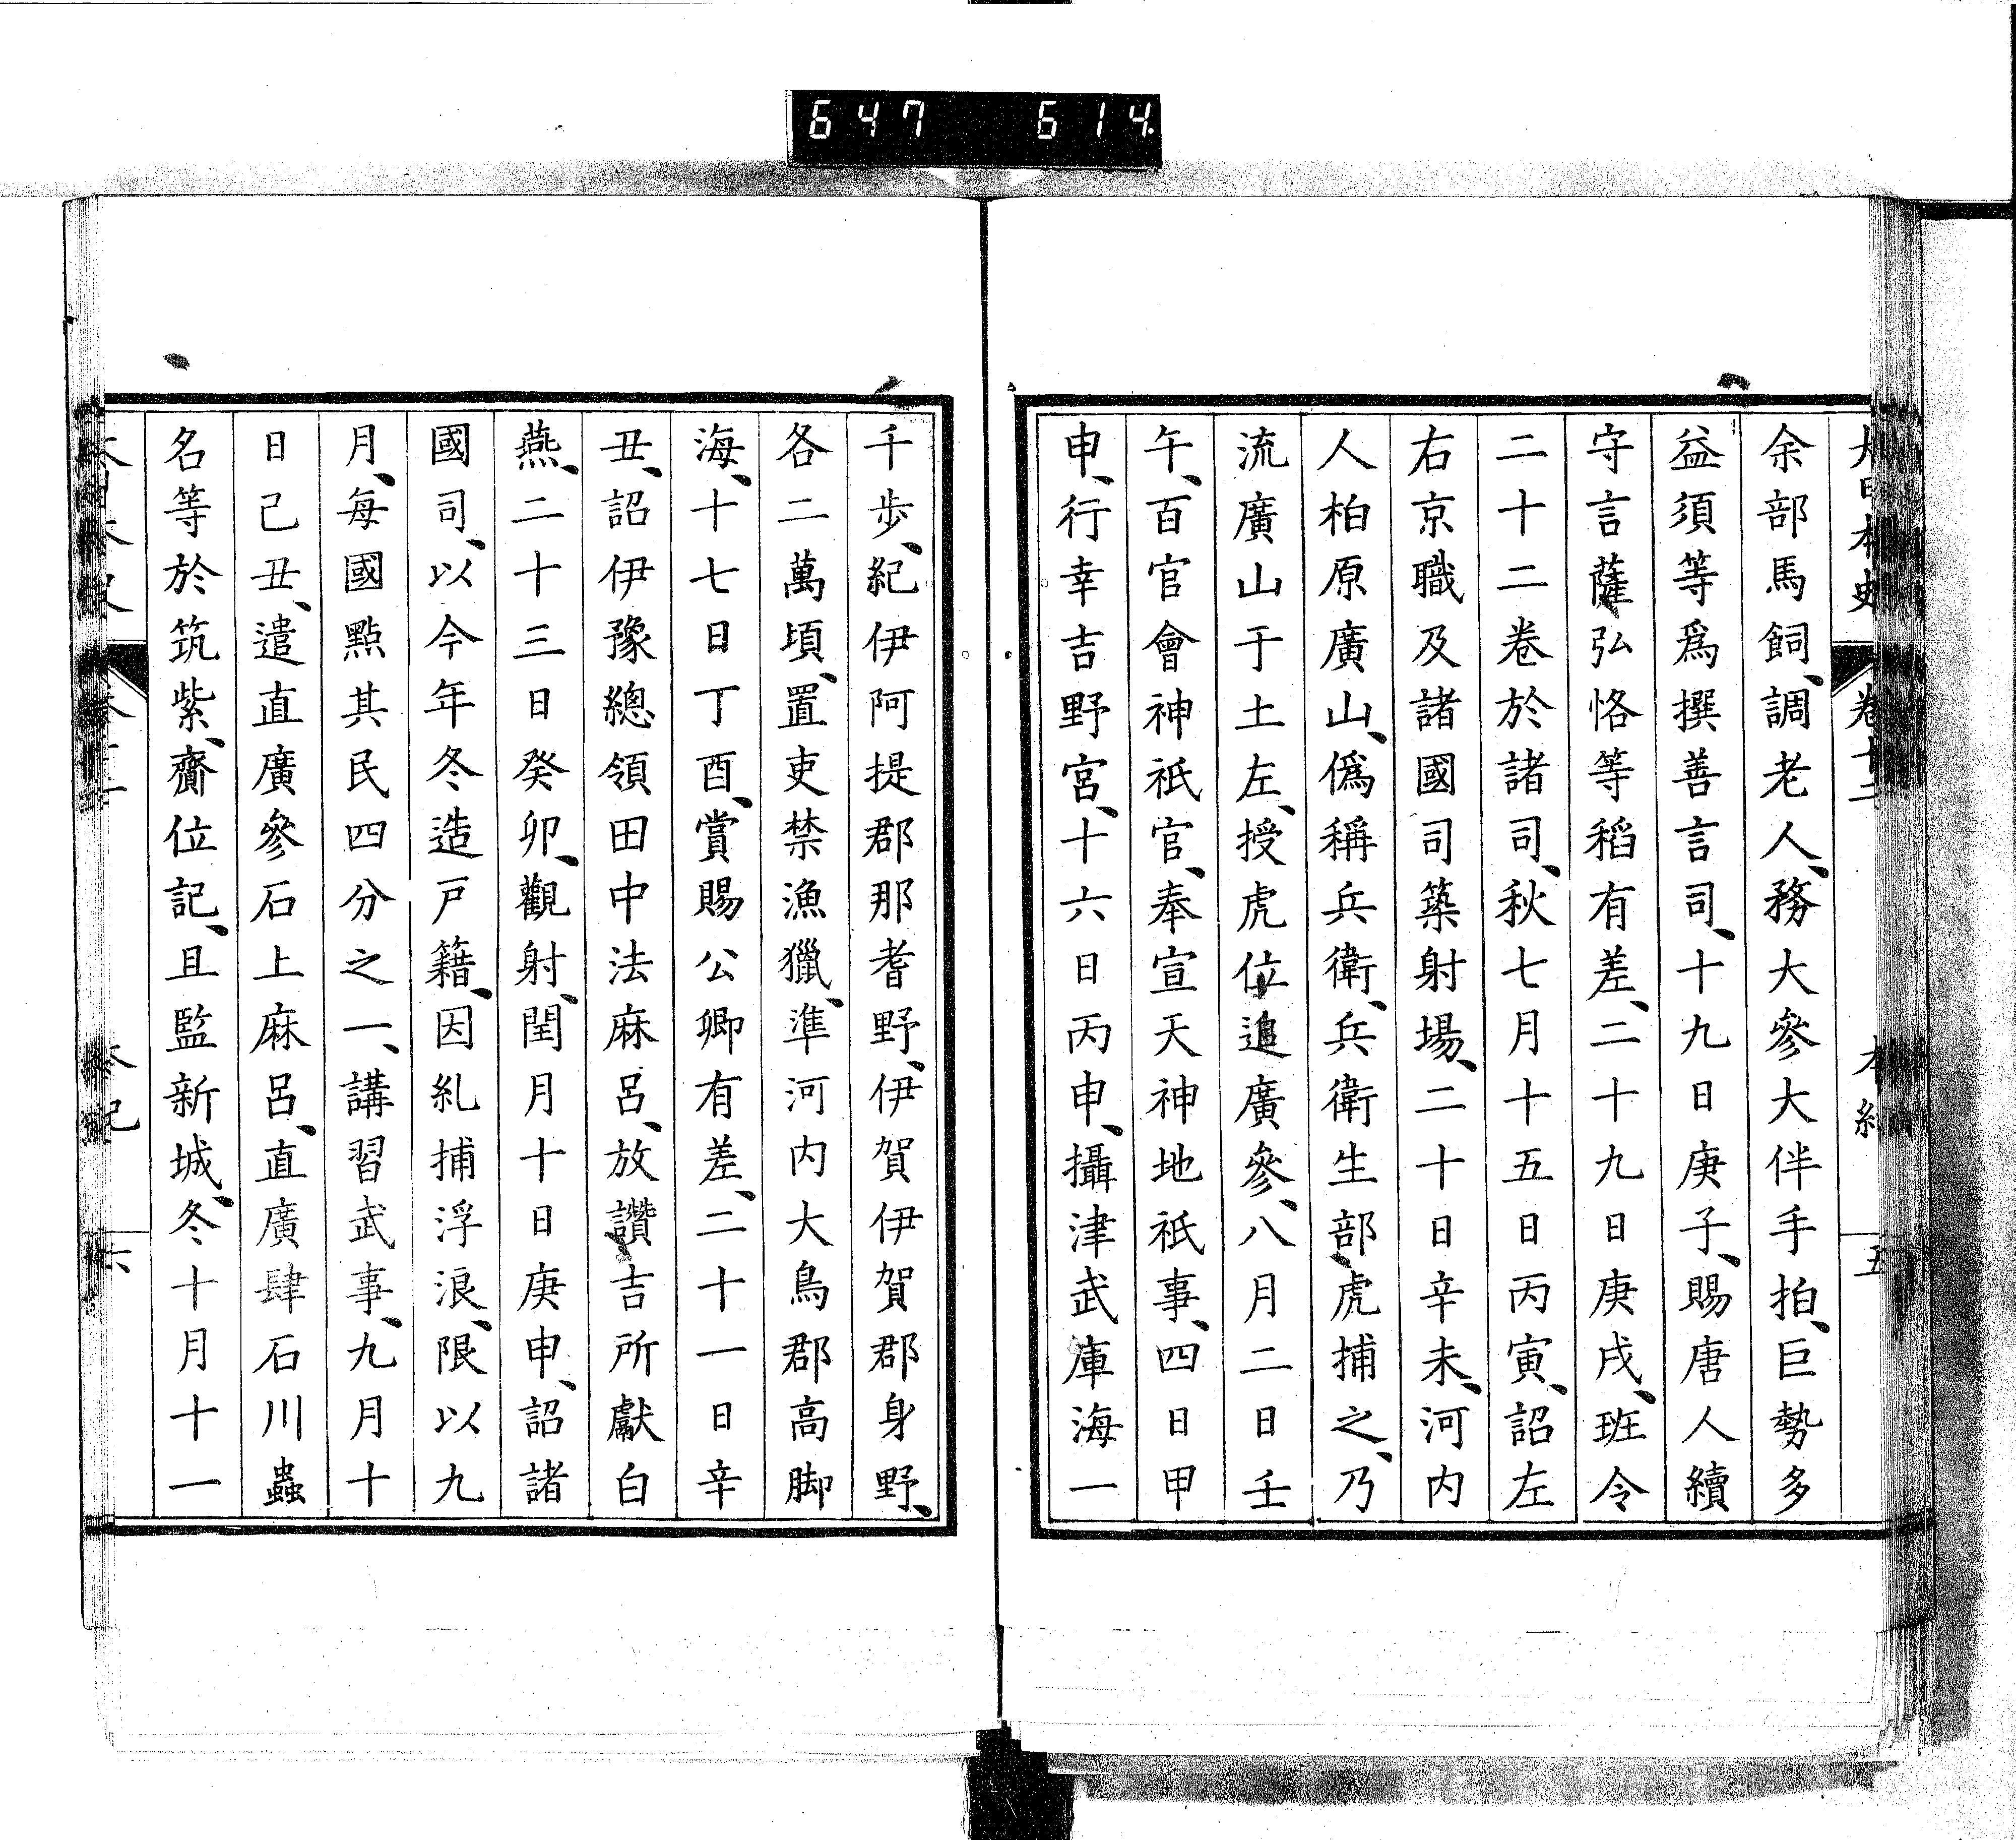 647 614
大日本史 卷十二 本紀 五
余部馬飼、調老人、務大參大伴手拍、巨勢多
益須等爲撰善言司、十九日庚子、賜唐人續
守言薩弘恪等稻有差、二十九日庚戌、班令
二十二卷於諸司、秋七月十五日丙寅、詔左
右京職及諸國司築射場、二十日辛未、河内
人柏原廣山、僞稱兵衛、兵衛生部虎捕之、乃
流廣山于土左、授虎位追廣參、八月二日壬
午、百官會神祇官、奉宣天神地祇事、四日甲
申、行幸吉野宮、十六日丙申、攝津武庫海一
千歩、紀伊阿提郡那耆野、伊賀伊賀郡身野、
各二萬頃、置吏禁漁獵、準河内大鳥郡高脚
海、十七日丁酉、賞賜公卿有差、二十一日辛
丑、詔伊豫總領田中法麻呂、放讚吉所獻白
燕、二十三日癸卯、觀射、閏月十日庚申、詔諸
國司、以今年冬造戸籍、因糺捕浮浪、限以九
月、每國點其民四分之一、講習武事、九月十
日己丑、遣直廣參石上麻呂、直廣肆石川蟲
名等於筑紫、齎位記、且監新城、冬十月十一
本紀 六